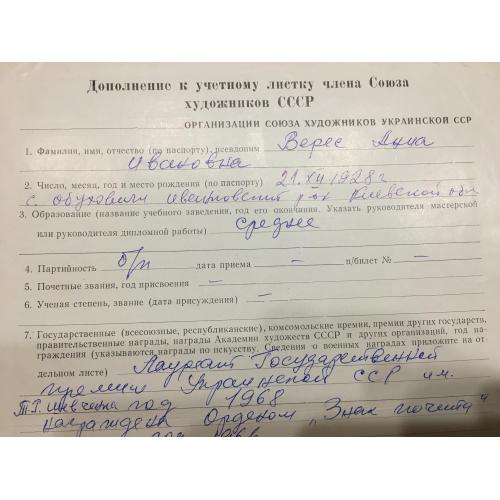 Дополнение к учетному листку члена Союза
художников СССР
ОРГАНИЗАЦИИ СОЮЗА ХУДОЖНИКОВ УКРАИНСКОЙ ССР
1. Фамилия, имя, отчество (по паспорту), псевдоним Верес Анна
Ивановна
2. Число, месяц, год и место рождения (по паспорту) 21.XII 1928 г
с. Обуховичи Иванковский р-он Киевской обл
3. Образование (название учебного заведения, год его окончания. Указать руководителя мастерской
или руководителя дипломной работы) среднее
4. Партийность б/п дата приема — п/билет № —
5. Почетные звания, год присвоения —
6. Ученая степень, звание (дата присуждения) —
7. Государственные (всесоюзные, республиканские), комсомольские премии, премии других государств,
правительственные награды, награды Академии художеств СССР и других организаций, год на-
граждения (указываются награды по искусству. Сведения о военных наградах приложите на от-
дельном листе) Лауреат Государственной
премии Украинской ССР им.
Т.Г. Шевченка год 1968
награждена Орденом „Знак почета"
год 1966